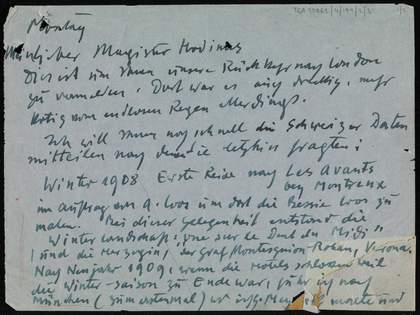 Montag
Magister Hodin
Dies ist um Ihnen unsere Rückkehr nach London
zu vermelden. Dort war es auch dreckig, mehr
vom endlosen Regen allerdings.
Ich will Ihnen noch schnell die Schweizer Daten
mitteilen nach denen Sie letzthin fragten:
Winter 1908 Erste Reise nach Les Avants
bey Montreux
im Auftrag von A. Loos um dort die Bessie Loos zu
malen. Bei dieser Gelegenheit entstand die
Winterlandschaft: "vue sur le Dent du Midi"
und die Herzogin, der Graf Montesquiou-Rohan, Verona.
Nach Neujahr 1909, wenn die Hotels schlossen weil
die Winter-saison zu Ende war, fuhr ich nach
München (zum erstenmal) wo ich